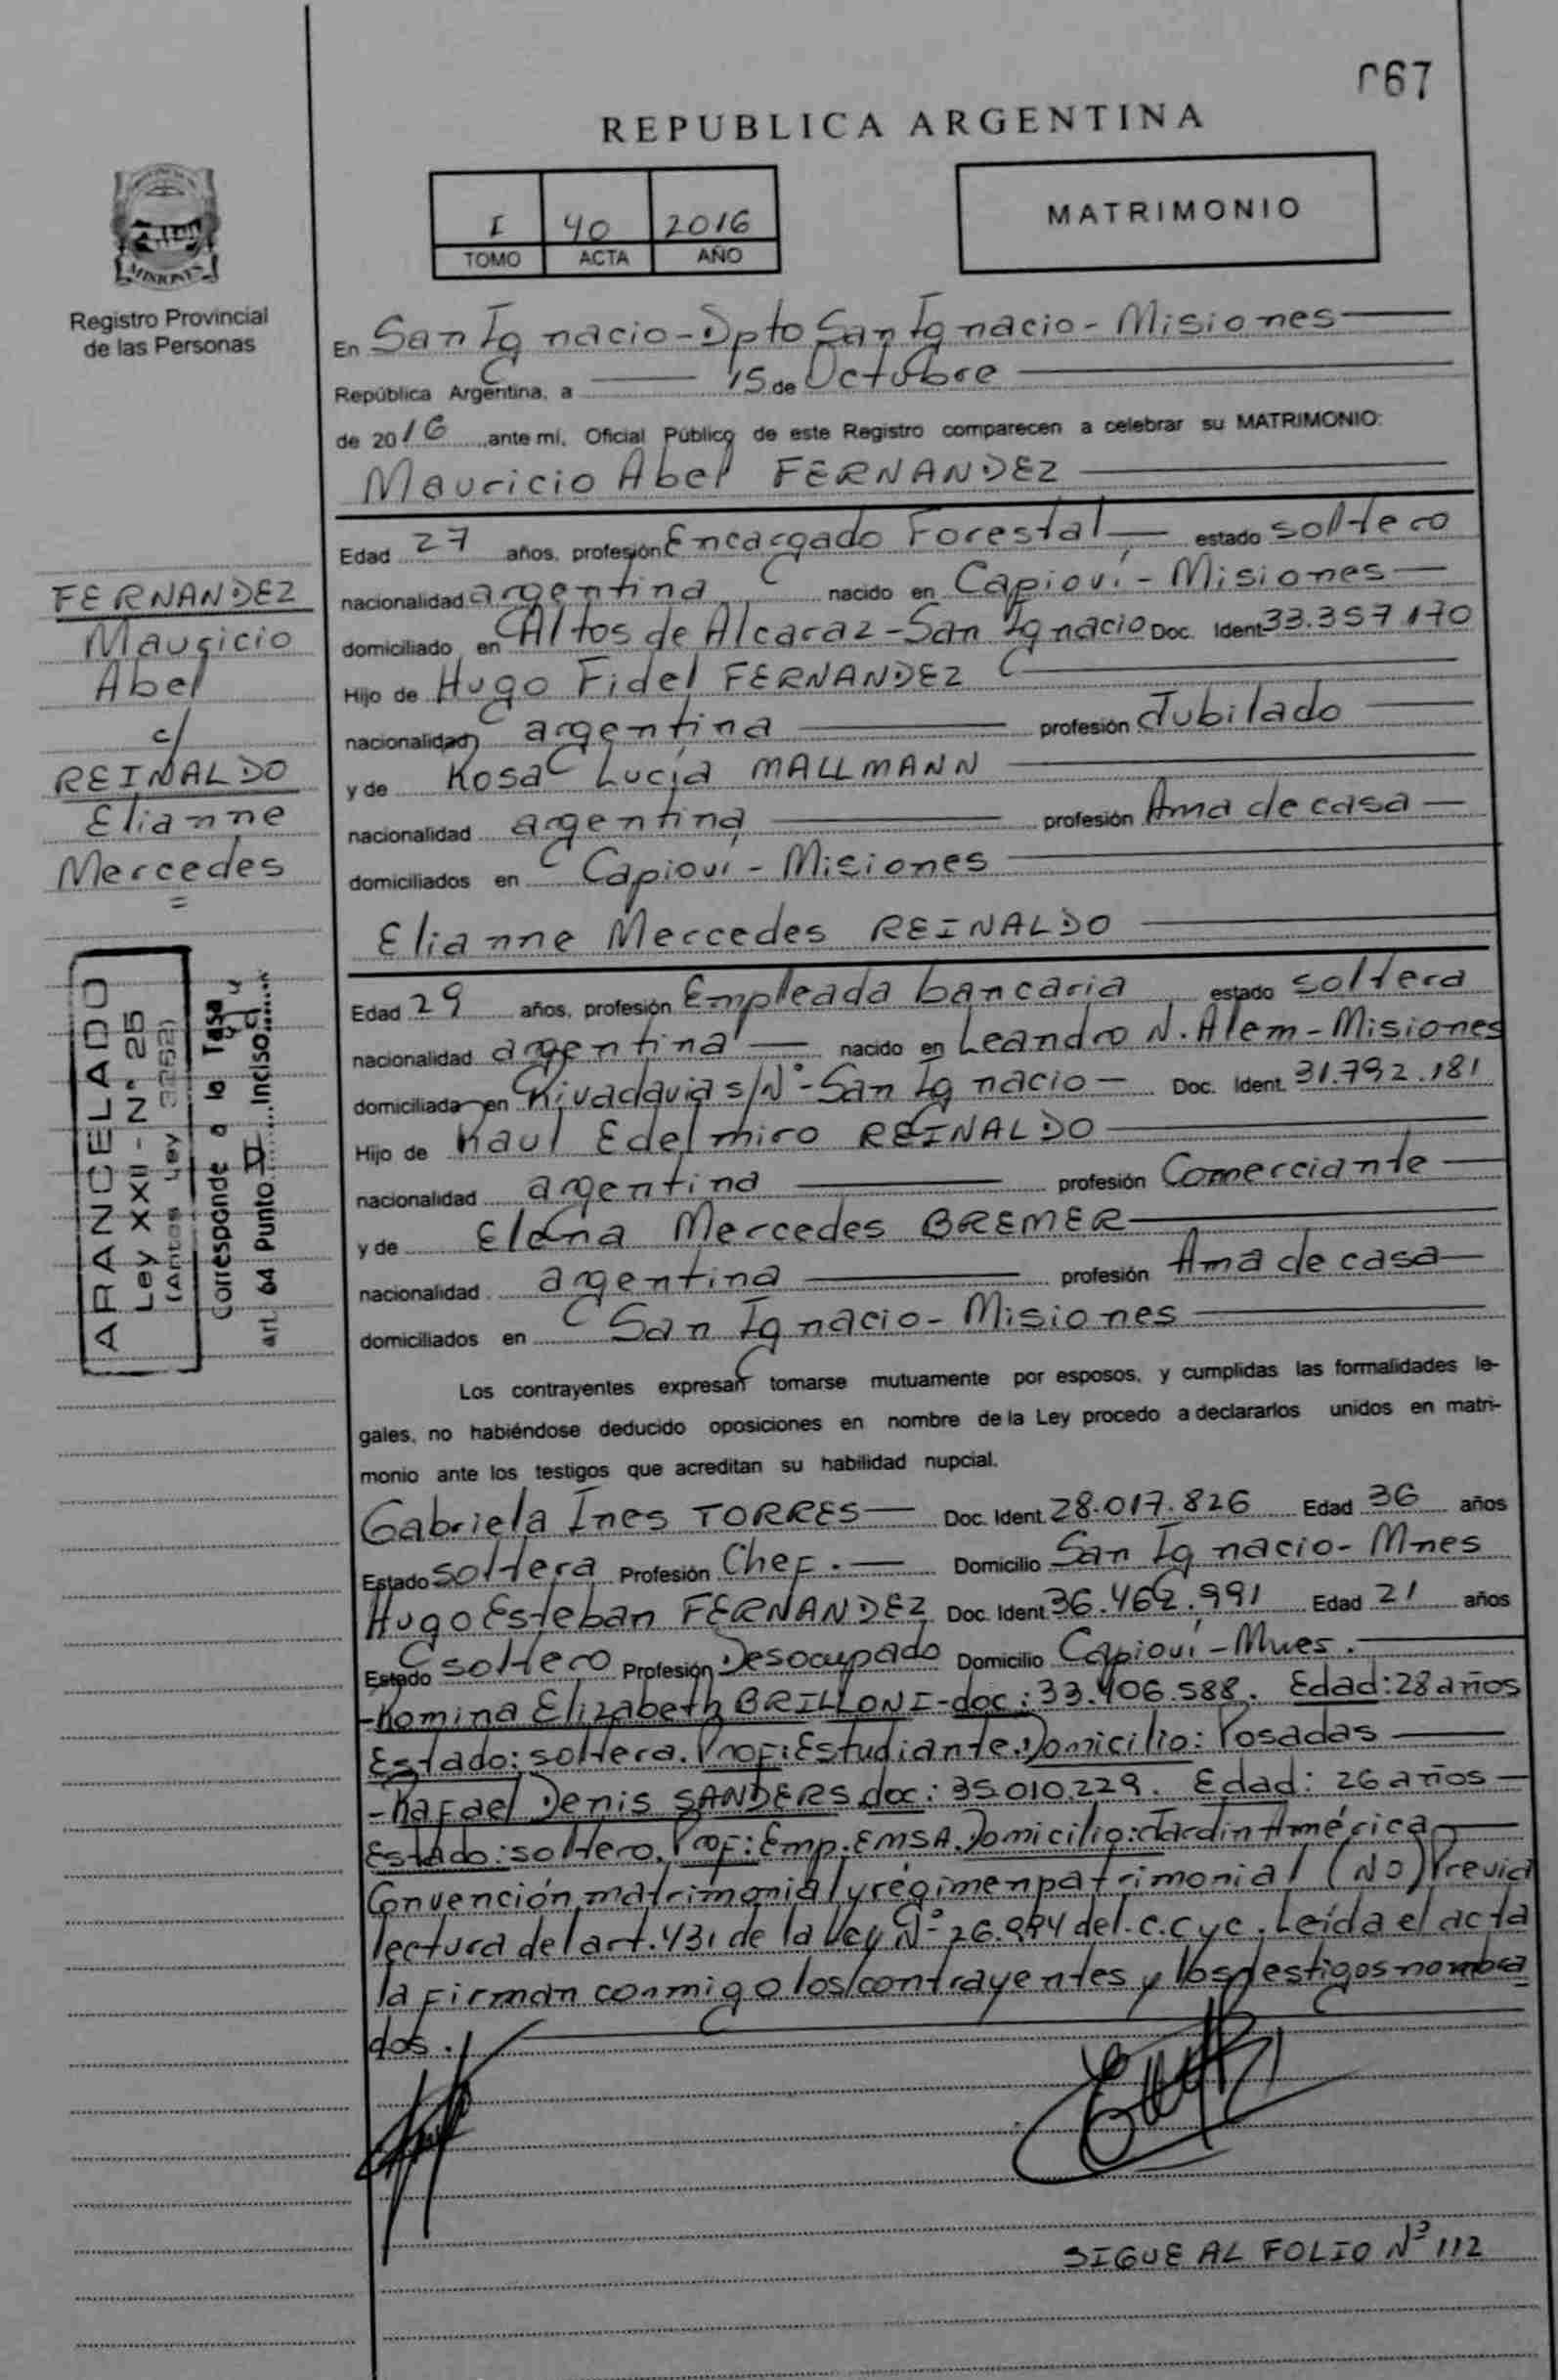 067
REPUBLICA ARGENTINA
I 40 2016
TOMO ACTA AÑO
MATRIMONIO
MISIONES
Registro Provincial
de las Personas
En San Ignacio - Dpto San Ignacio - Misiones
República Argentina, a 15 de Octubre
de 2016 ante mí, Oficial Público de este Registro comparecen a celebrar su MATRIMONIO:
Mauricio Abel FERNANDEZ
Edad 27 años, profesión Encargado Forestal estado soltero
nacionalidad argentina nacido en Capioví - Misiones
domiciliado en Altos de Alcaraz - San Ignacio Doc. Ident 33.357.170
Hijo de Hugo Fidel FERNANDEZ
nacionalidad argentina profesión Jubilado
y de Rosa Lucía MALLMANN
nacionalidad argentina profesión Ama de casa
domiciliados en Capioví - Misiones
Elianne Mercedes REINALDO
Edad 29 años, profesión Empleada bancaria estado soltera
nacionalidad argentina nacido en Leandro N. Alem - Misiones
domiciliada en Rivadavia s/Nº - San Ignacio Doc. Ident. 31.792.181
Hijo de Raul Edelmiro REINALDO
nacionalidad argentina profesión Comerciante
y de Elena Mercedes BREMER
nacionalidad argentina profesión Ama de casa
domiciliados en San Ignacio - Misiones
Los contrayentes expresan tomarse mutuamente por esposos, y cumplidas las formalidades le-
gales, no habiéndose deducido oposiciones en nombre de la Ley procedo a declararlos unidos en matri-
monio ante los testigos que acreditan su habilidad nupcial.
Gabriela Ines TORRES Doc. Ident. 28.017.826 Edad 36 años
Estado soltera Profesión Chef. Domicilio San Ignacio - Mnes
Hugo Esteban FERNANDEZ Doc. Ident. 36.462.991 Edad 21 años
Estado soltero Profesión Desocupado Domicilio Capioví - Mnes.
- Romina Elizabeth BRILLONI - doc: 33.406.588. Edad: 28 años
Estado: soltera. Prof: Estudiante. Domicilio: Posadas
- Rafael Denis SANDERS doc: 35.010.229. Edad: 26 años
Estado: soltero. Prof: Emp. EMSA. Domicilio: Jardin América
Convención matrimonial y régimen patrimonial (NO) Previa
lectura del art. 431 de la Ley Nº 26.994 del C.C y C. Leída el acta
la firman conmigo los contrayentes y los testigos nombra
dos.
SIGUE AL FOLIO Nº 112
FERNANDEZ
Mauricio
Abel
c/
REINALDO
Elianne
Mercedes
=
ARANCELADO
Ley XXII - Nº 25
(Antes Ley 3252)
Corresponde a la Tasa
art. 64 Punto V Inciso